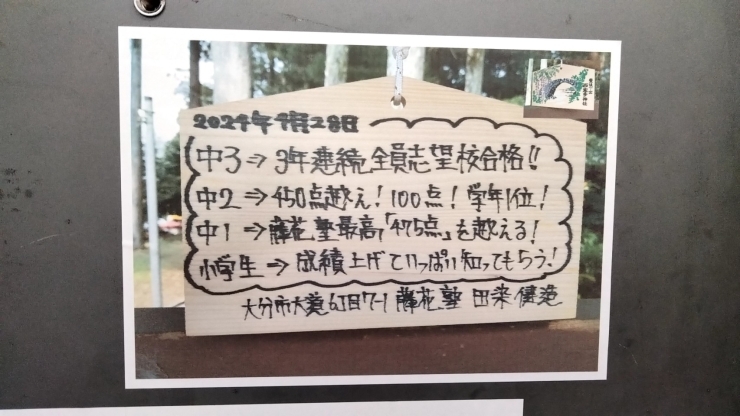 2024年9月28日
中3⇒3年連続全員志望校合格!!
中2⇒450点越え!100点!学年1位!
中1⇒藤花塾最高「475点」を越える!
小学生⇒成績上げていっぱい知ってもらう!
大分市大道6丁目7-1 藤花塾